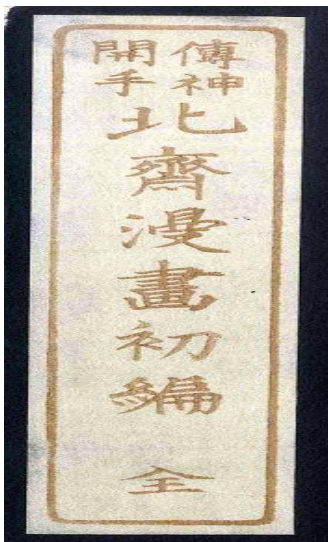 傳神
開手
北齋漫畫初編 全